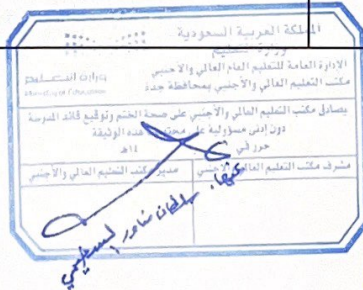 المملكة العربية السعودية
وزارة التعليم
وزارة التعليم
Ministry of Education
الإدارة العامة للتعليم العام العالي والأجنبي
مكتب التعليم العالي والأجنبي بمحافظة جدة
يصادق مكتب التعليم العالي والأجنبي على صحة الختم وتوقيع قائد المدرسة
دون أدنى مسؤولية على محتوى هذه الوثيقة
حرر في ١٤هـ
مشرف مكتب التعليم العالي والأجنبي
مدير مكتب التعليم العالي والأجنبي